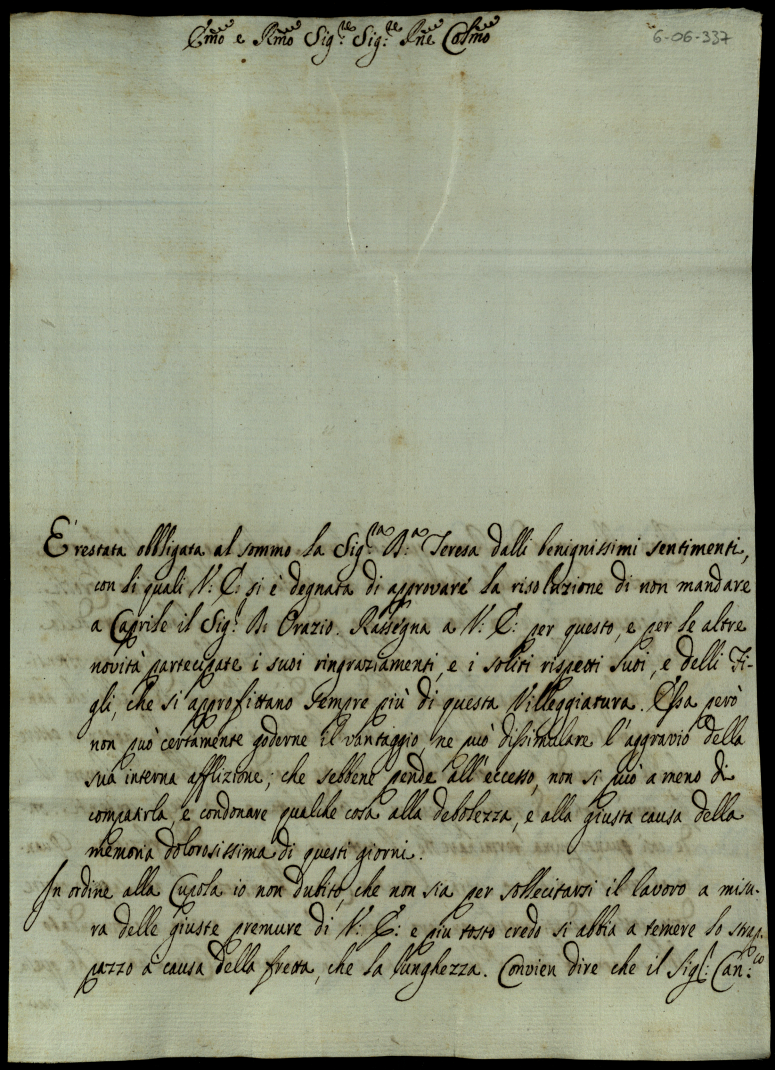 Emo e Rmo Sig.re Sig.re Pne Colmo
6-06-337
E' restata obbligata al sommo la Sig.ra B.a Teresa dalli benignissimi sentimenti,
con li quali V: E: si è degnata di approvare la risoluzione di non mandare
a Caprile il Sig.r B: Orazio. Rassegna a V: E: per questo, e per le altre
novità partecipate i suoi ringraziamenti, e i soliti rispetti suoi, e delli Fi-
gli, che si approfittano sempre più di questa Villeggiatura. Essa però
non può certamente goderne il vantaggio, ne può dissimulare l'aggravio della
sua interna afflizione; che sebbene pende all'eccesso, non si può a meno di
compatirla, e condonare qualche cosa alla debolezza, e alla giusta causa della
memoria dolorosissima di questi giorni.
In ordine alla Cupola io non dubito, che non sia per sollecitarsi il lavoro a misu-
ra delle giuste premure di V: E: e più tosto credo si abbia a temere lo strap-
pazzo a causa della fretta, che la lunghezza. Convien dire che il Sig.r Can.co